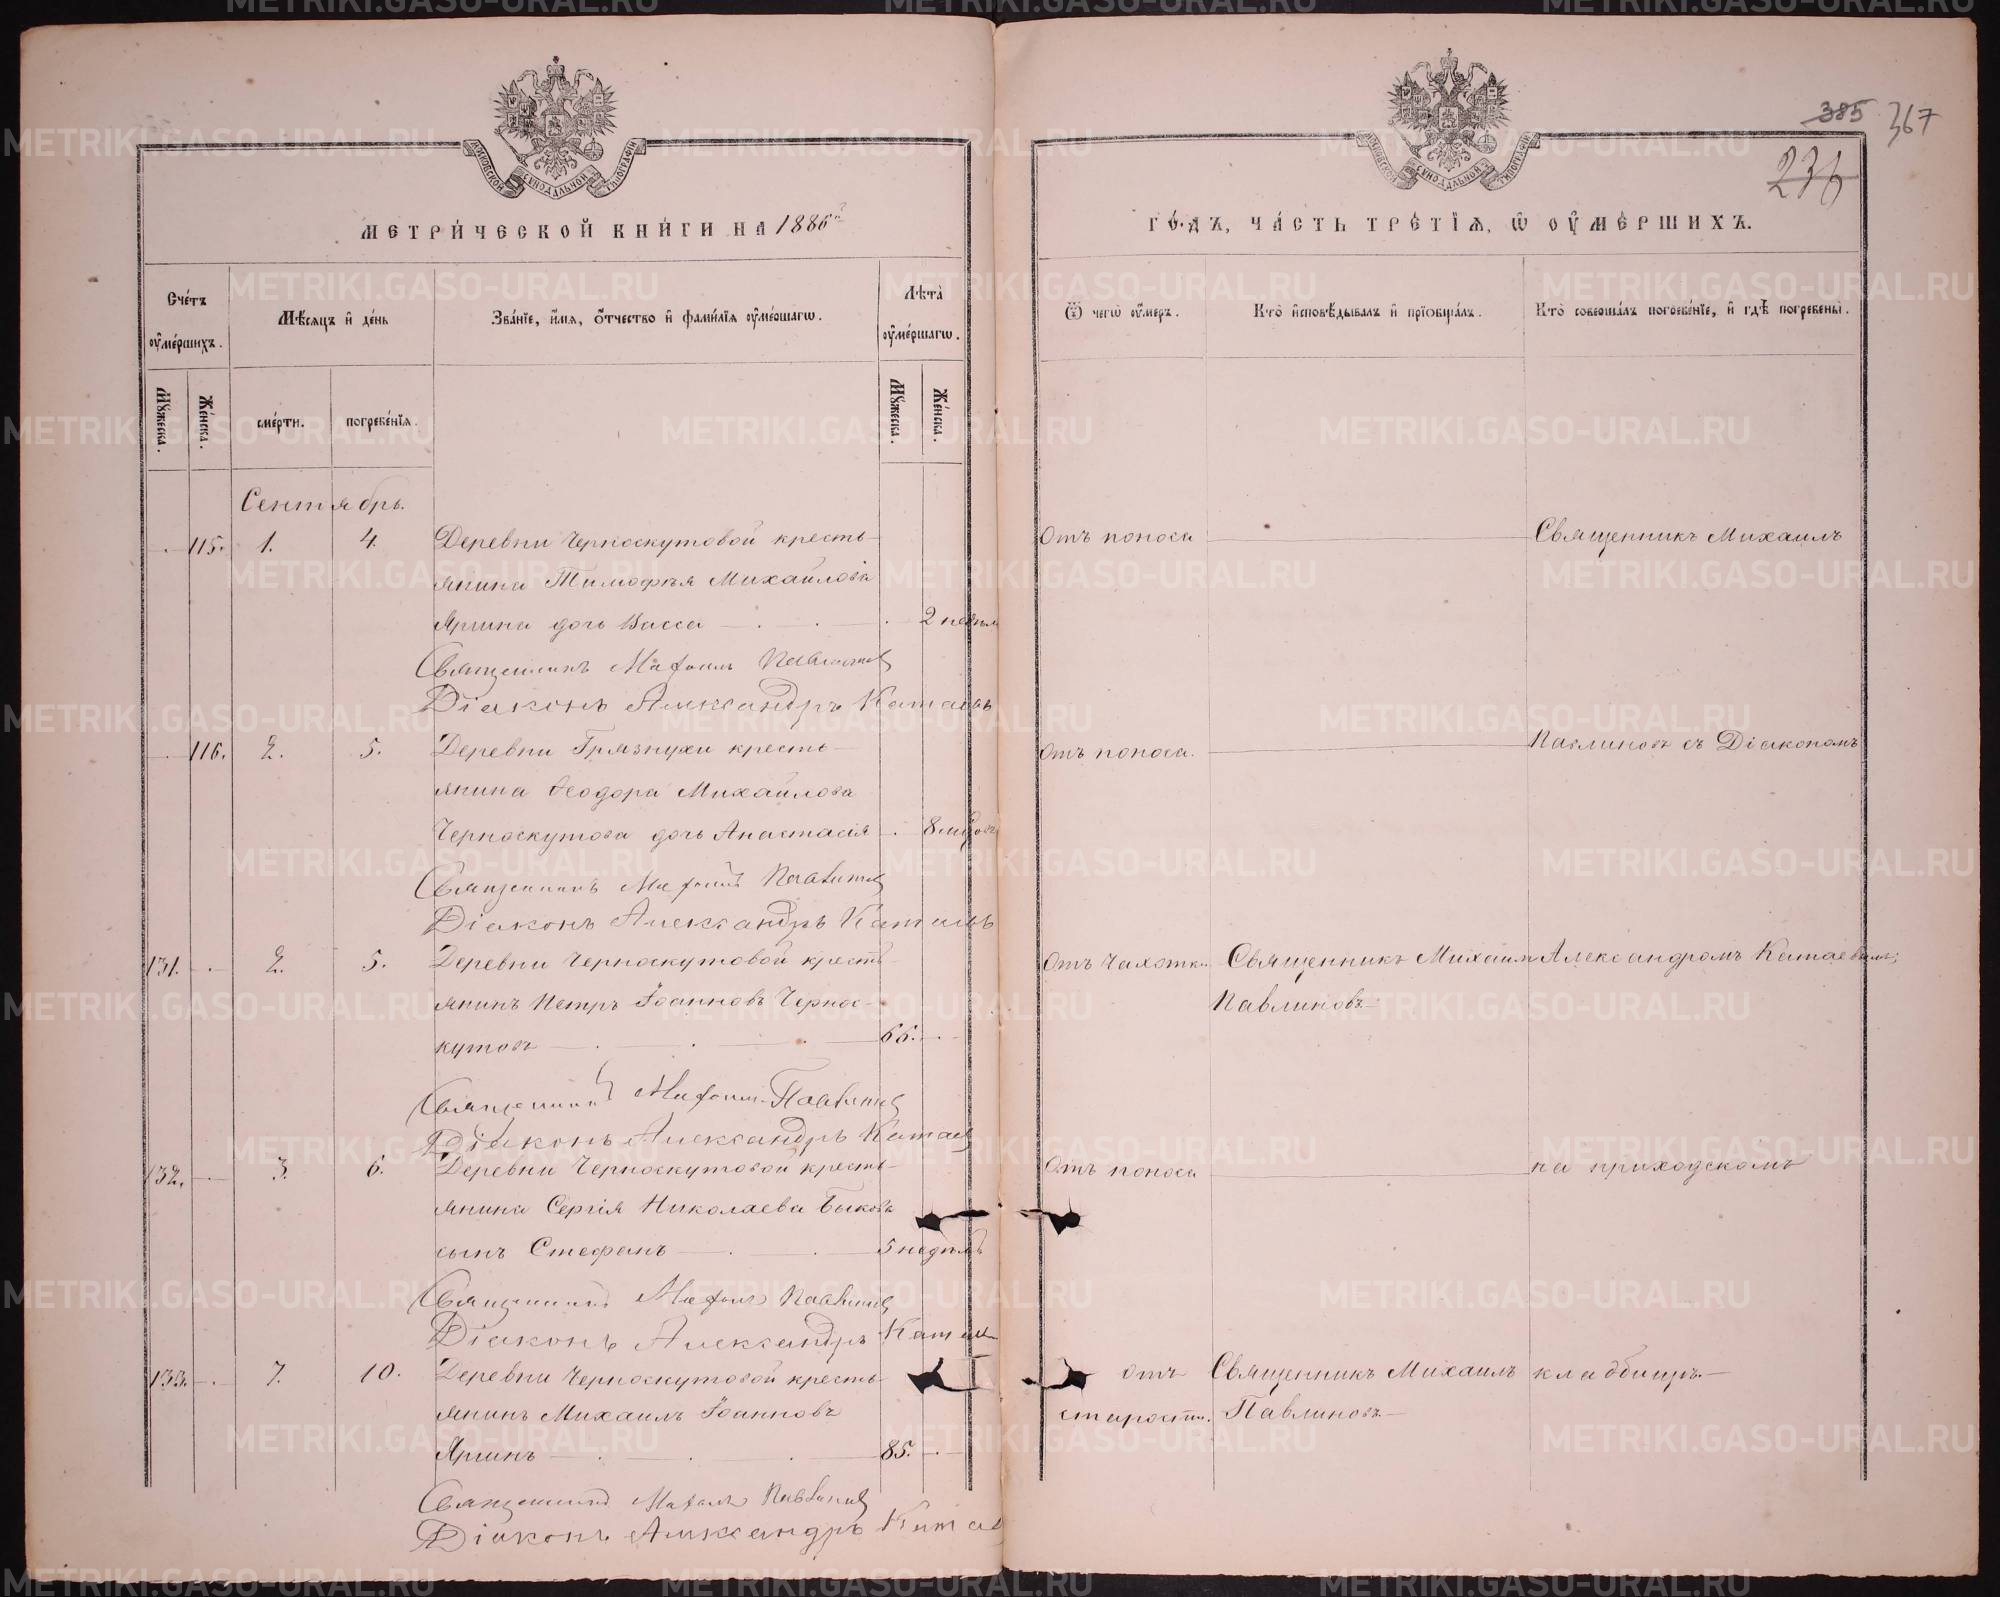 МЕТРИ́ЧЕСКОЙ КНИ́ГИ НА 1886й
Сче́тъ ᲂу҆ме́ршихъ.
Мѣ́сяцъ и҆ де́нь
Зва́нїе, и҆́мя, ѻ҆́тчество и҆ фами́лїя ᲂу҆ме́ршагѡ.
Лѣ́та ᲂу҆ме́ршагѡ.
Мꙋ́жеска.
Же́нска.
сме́рти.
погребе́нїя.
Мꙋ́жеска.
Же́нска.
Сентябрь.
115. 1. 4. Деревни Черноскутовой кресть-
янина Тимофѣя Михайлова
Яргина дочь Васса 2 недѣл
Священникъ Михаилъ Павлиновъ
Дiаконъ Александръ Катаевъ
116. 2. 5. Деревни Грязнухи кресть-
янина Ѳеодора Михайлова
Черноскутова дочь Анастасiя 8 мѣсяц
Священникъ Михаилъ Павлиновъ
Дiаконъ Александръ Катаевъ
131. 2. 5. Деревни Черноскутовой кресть-
янинъ Петръ Iоанновъ Чернос-
кутовъ 66.
Священникъ Михаилъ Павлиновъ
Дiаконъ Александръ Катаев
132. 3. 6. Деревни Черноскутовой кресть-
янина Сергiя Николаева Быкова
сынъ Стефанъ 5 недѣль
Священникъ Михаилъ Павлиновъ
Дiаконъ Александръ Катаев
133. 7. 10. Деревни Черноскутовой кресть-
янинъ Михаилъ Iоанновъ
Яргинъ 85.
Священникъ Михаилъ Павлиновъ
Дiаконъ Александръ Катаев
385 367
236
ГО́ДЪ, ЧА́СТЬ ТРЕ́ТЇѦ, Ѡ҆ ОУ҆МЕ́РШИХЪ.
Ѿ чегѡ̀ ᲂу҆́меръ.
Кто̀ и҆сповѣ́дывалъ и҆ прїѡбща́лъ.
Кто̀ соверша́лъ погребе́нїе, и҆ гдѣ̀ погребены̀.
Отъ поноса
Священникъ Михаилъ
Отъ поноса.
Павлиновъ съ Дiакономъ
Отъ чахотки
Священникъ Михаилъ
Павлиновъ
Александромъ Катаевымъ,
Отъ поноса
на приходскомъ
отъ
старости.
Священникъ Михаилъ
Павлиновъ.
кладбищѣ.
METRIKI.GASO-URAL.RU